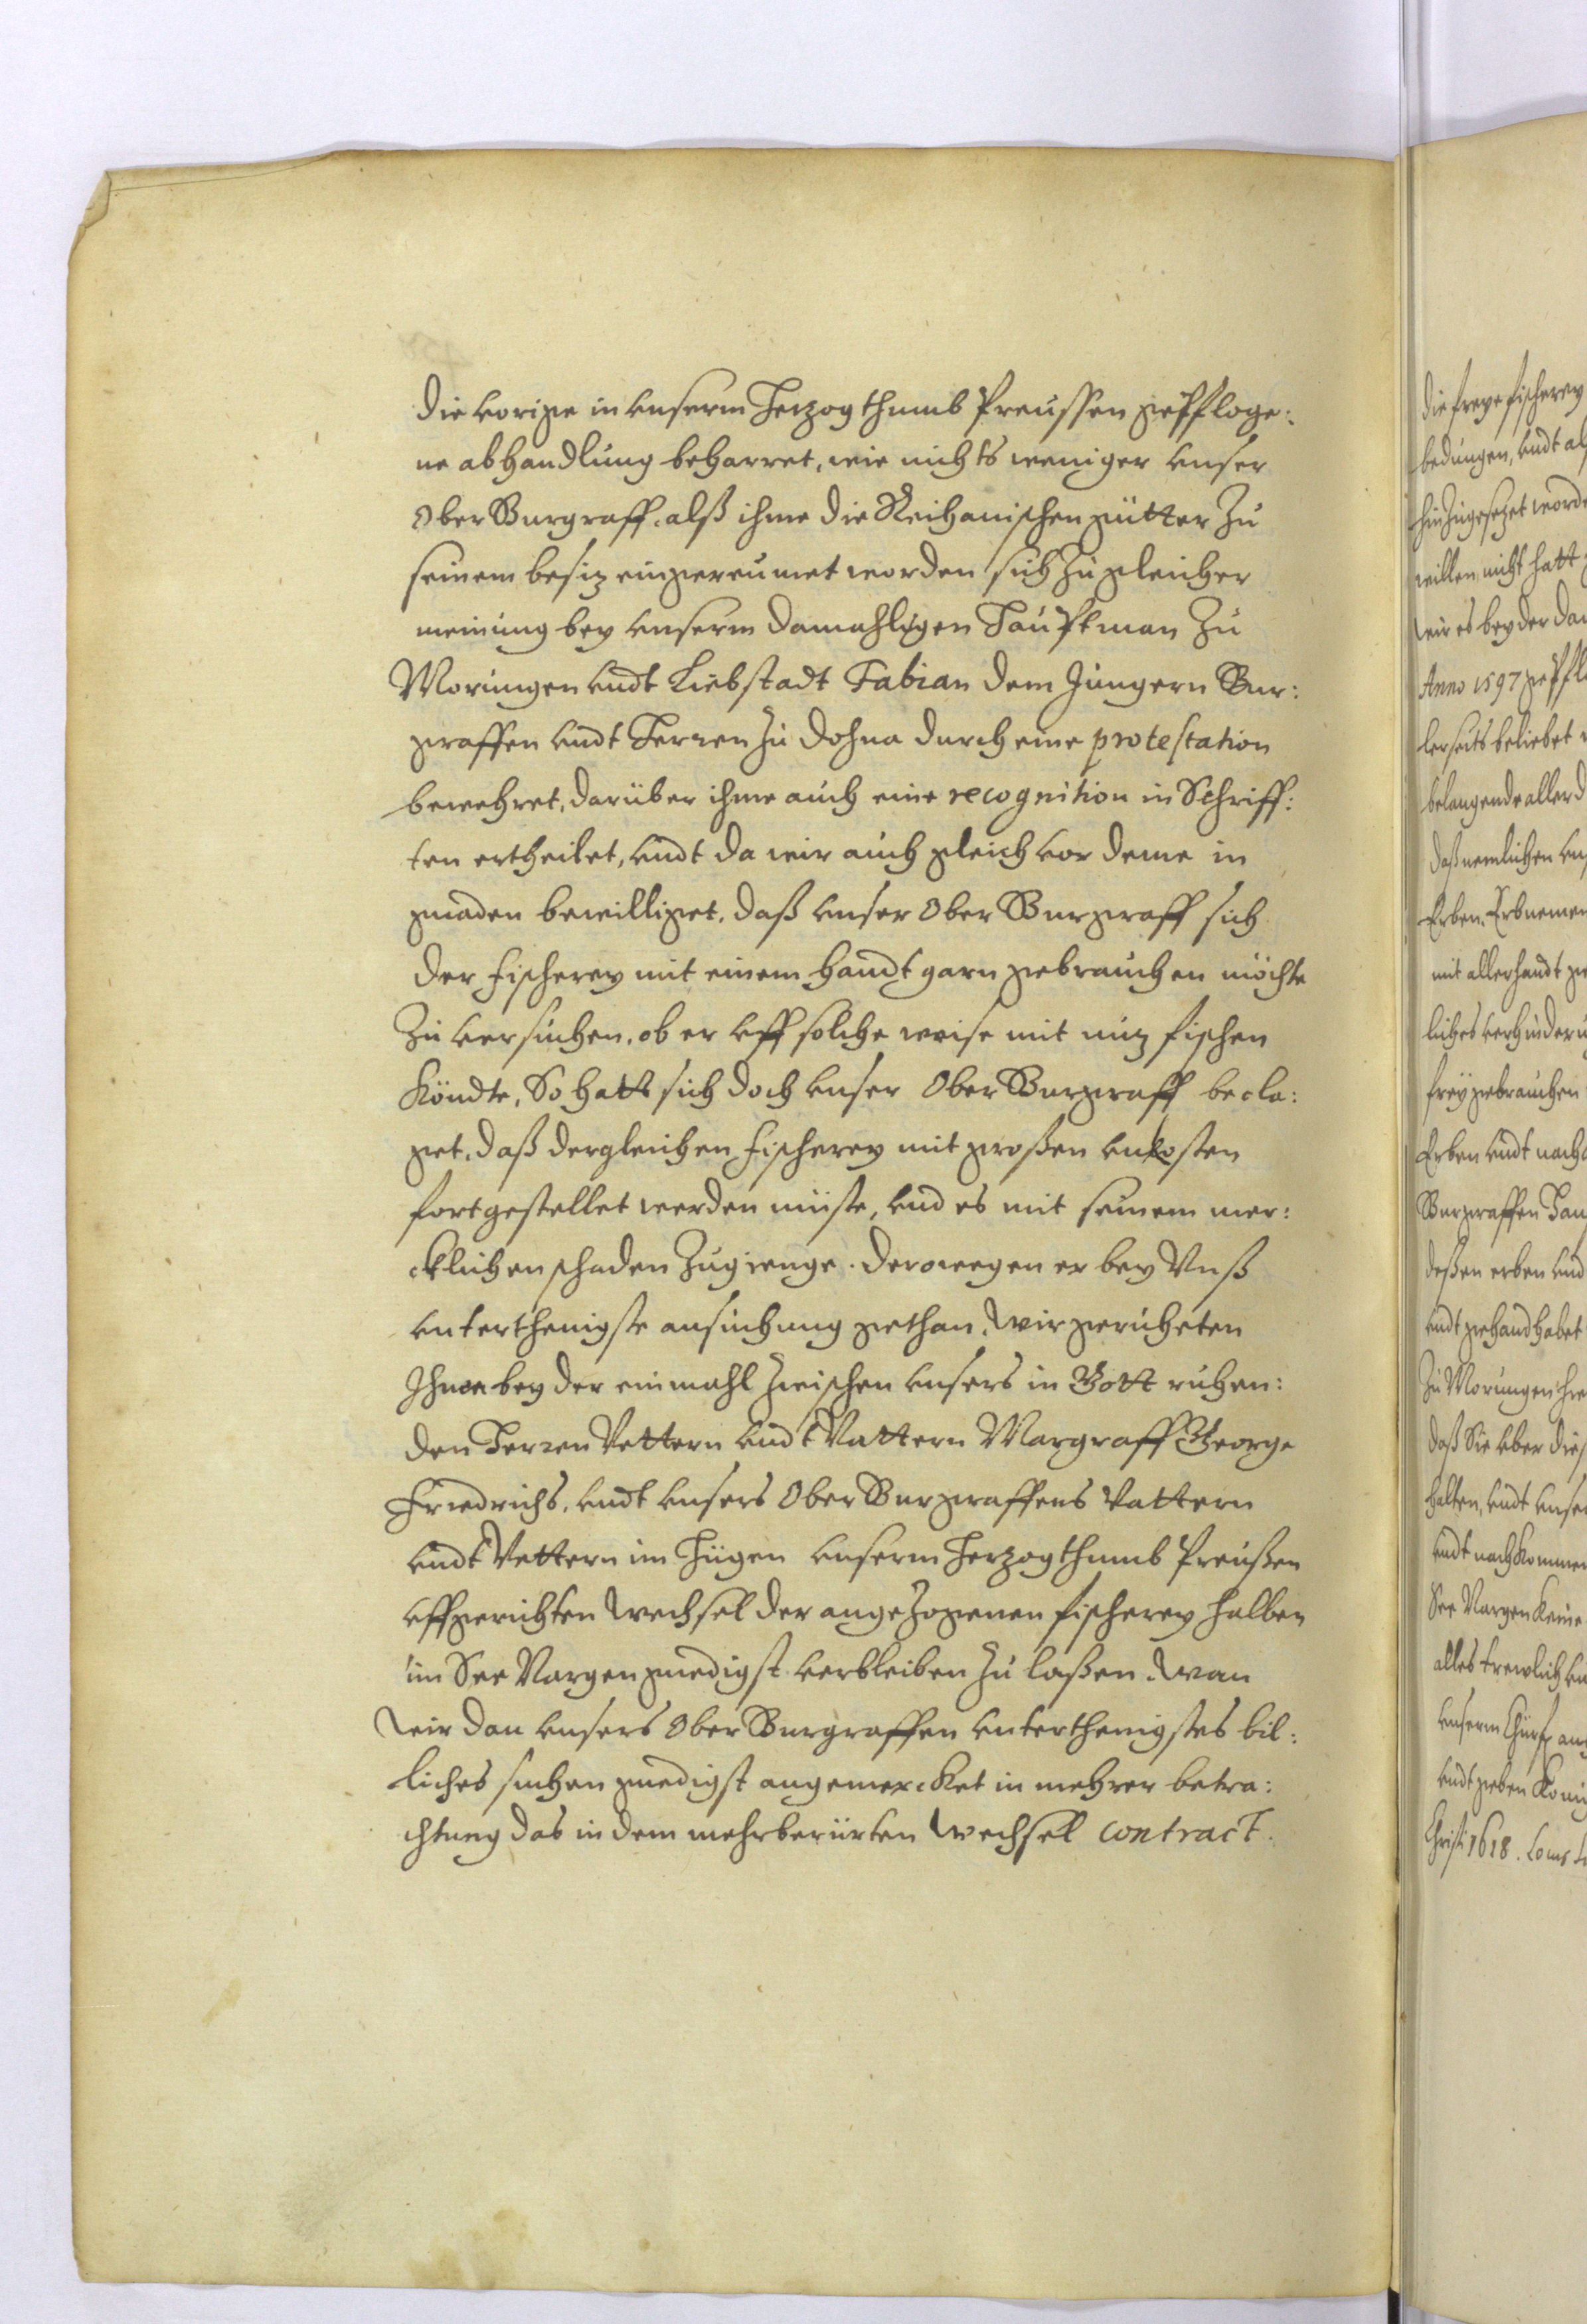 die vorige in vnserm Herzogthumb Preussen gepfloge:
ne abhandlung beharret, wie nichts weniger vnser
Ober Burgraff, alß ihme die Reichauischen gütter zu
seinem besiz eingereumet worden sich zu gleicher
meinung bey vnserm damahligen Hauptman zu
Morungen vndt Liebstadt Fabian dem Jüngern Bur:
graffen vndt Herren zu Dohna durch eine protestation
bewehret, darüber ihme auch eine recognition in Schriff:
ten ertheilet, vndt da wir auch gleich vor deme in
gnaden bewilliget, daß vnser Ober Burgraff sich
der fischerey mit einem handtgarn gebrauchen möchte
Zu versuchen, ob er vff solche weise mit nuz fischen
Köndte, So hatt sich doch vnser Ober Burgraff becla:
get, daß dergleichen fischerey mit großen vnkosten
fortgestellet werden müste, vnd es mit seinem mer:
cklichen schaden Zugienge. Derowegen er bey Vnß
vnterthenigste ansuchung gethan, wir gerucheten
Ihnen bey der einmahl zwischen vnsers in Gott ruhen:
den Herren Vettern vndt Vattern Margraff George
Friedrichs, vndt vnsers Ober Burgraffens Vattern
vndt Vettern im hiigen vnserm Herzogthumb Preußen
vffgerichten Wechsel der angezogenen fischerey halben
im See Nargen gnedigst verbleiben zu laßen. Wan
Wir dan vnsers Ober Burgraffen vnterthenigstes bil:
liches suchen gnedigst angemercket in mehrer betra:
chtung das in dem mehrberürten Wechsel contract.
die freye fischerey
bedungen, vndt al
hinzugesezet worde
willen, nicht hatt
Wir es bey der da
Anno 1597 gepfl
lerseits beliebet
belangende aller d
daß nemlichen vn
Erben, Erbnemen
mit allerhandt ge
liches verhinderu
frey gebrauchen
Erben vndt nach
Burgraffen Hau
deßen erben vnd
vndt gehandhabet
Zu Morungen hie
daß Sie vber dies
halten, vndt vnse
vndt nachKommen
See Nargen Keine
alles trewlich vn
vnserm Churf. an
vndt geben Köni
Christi 1618.